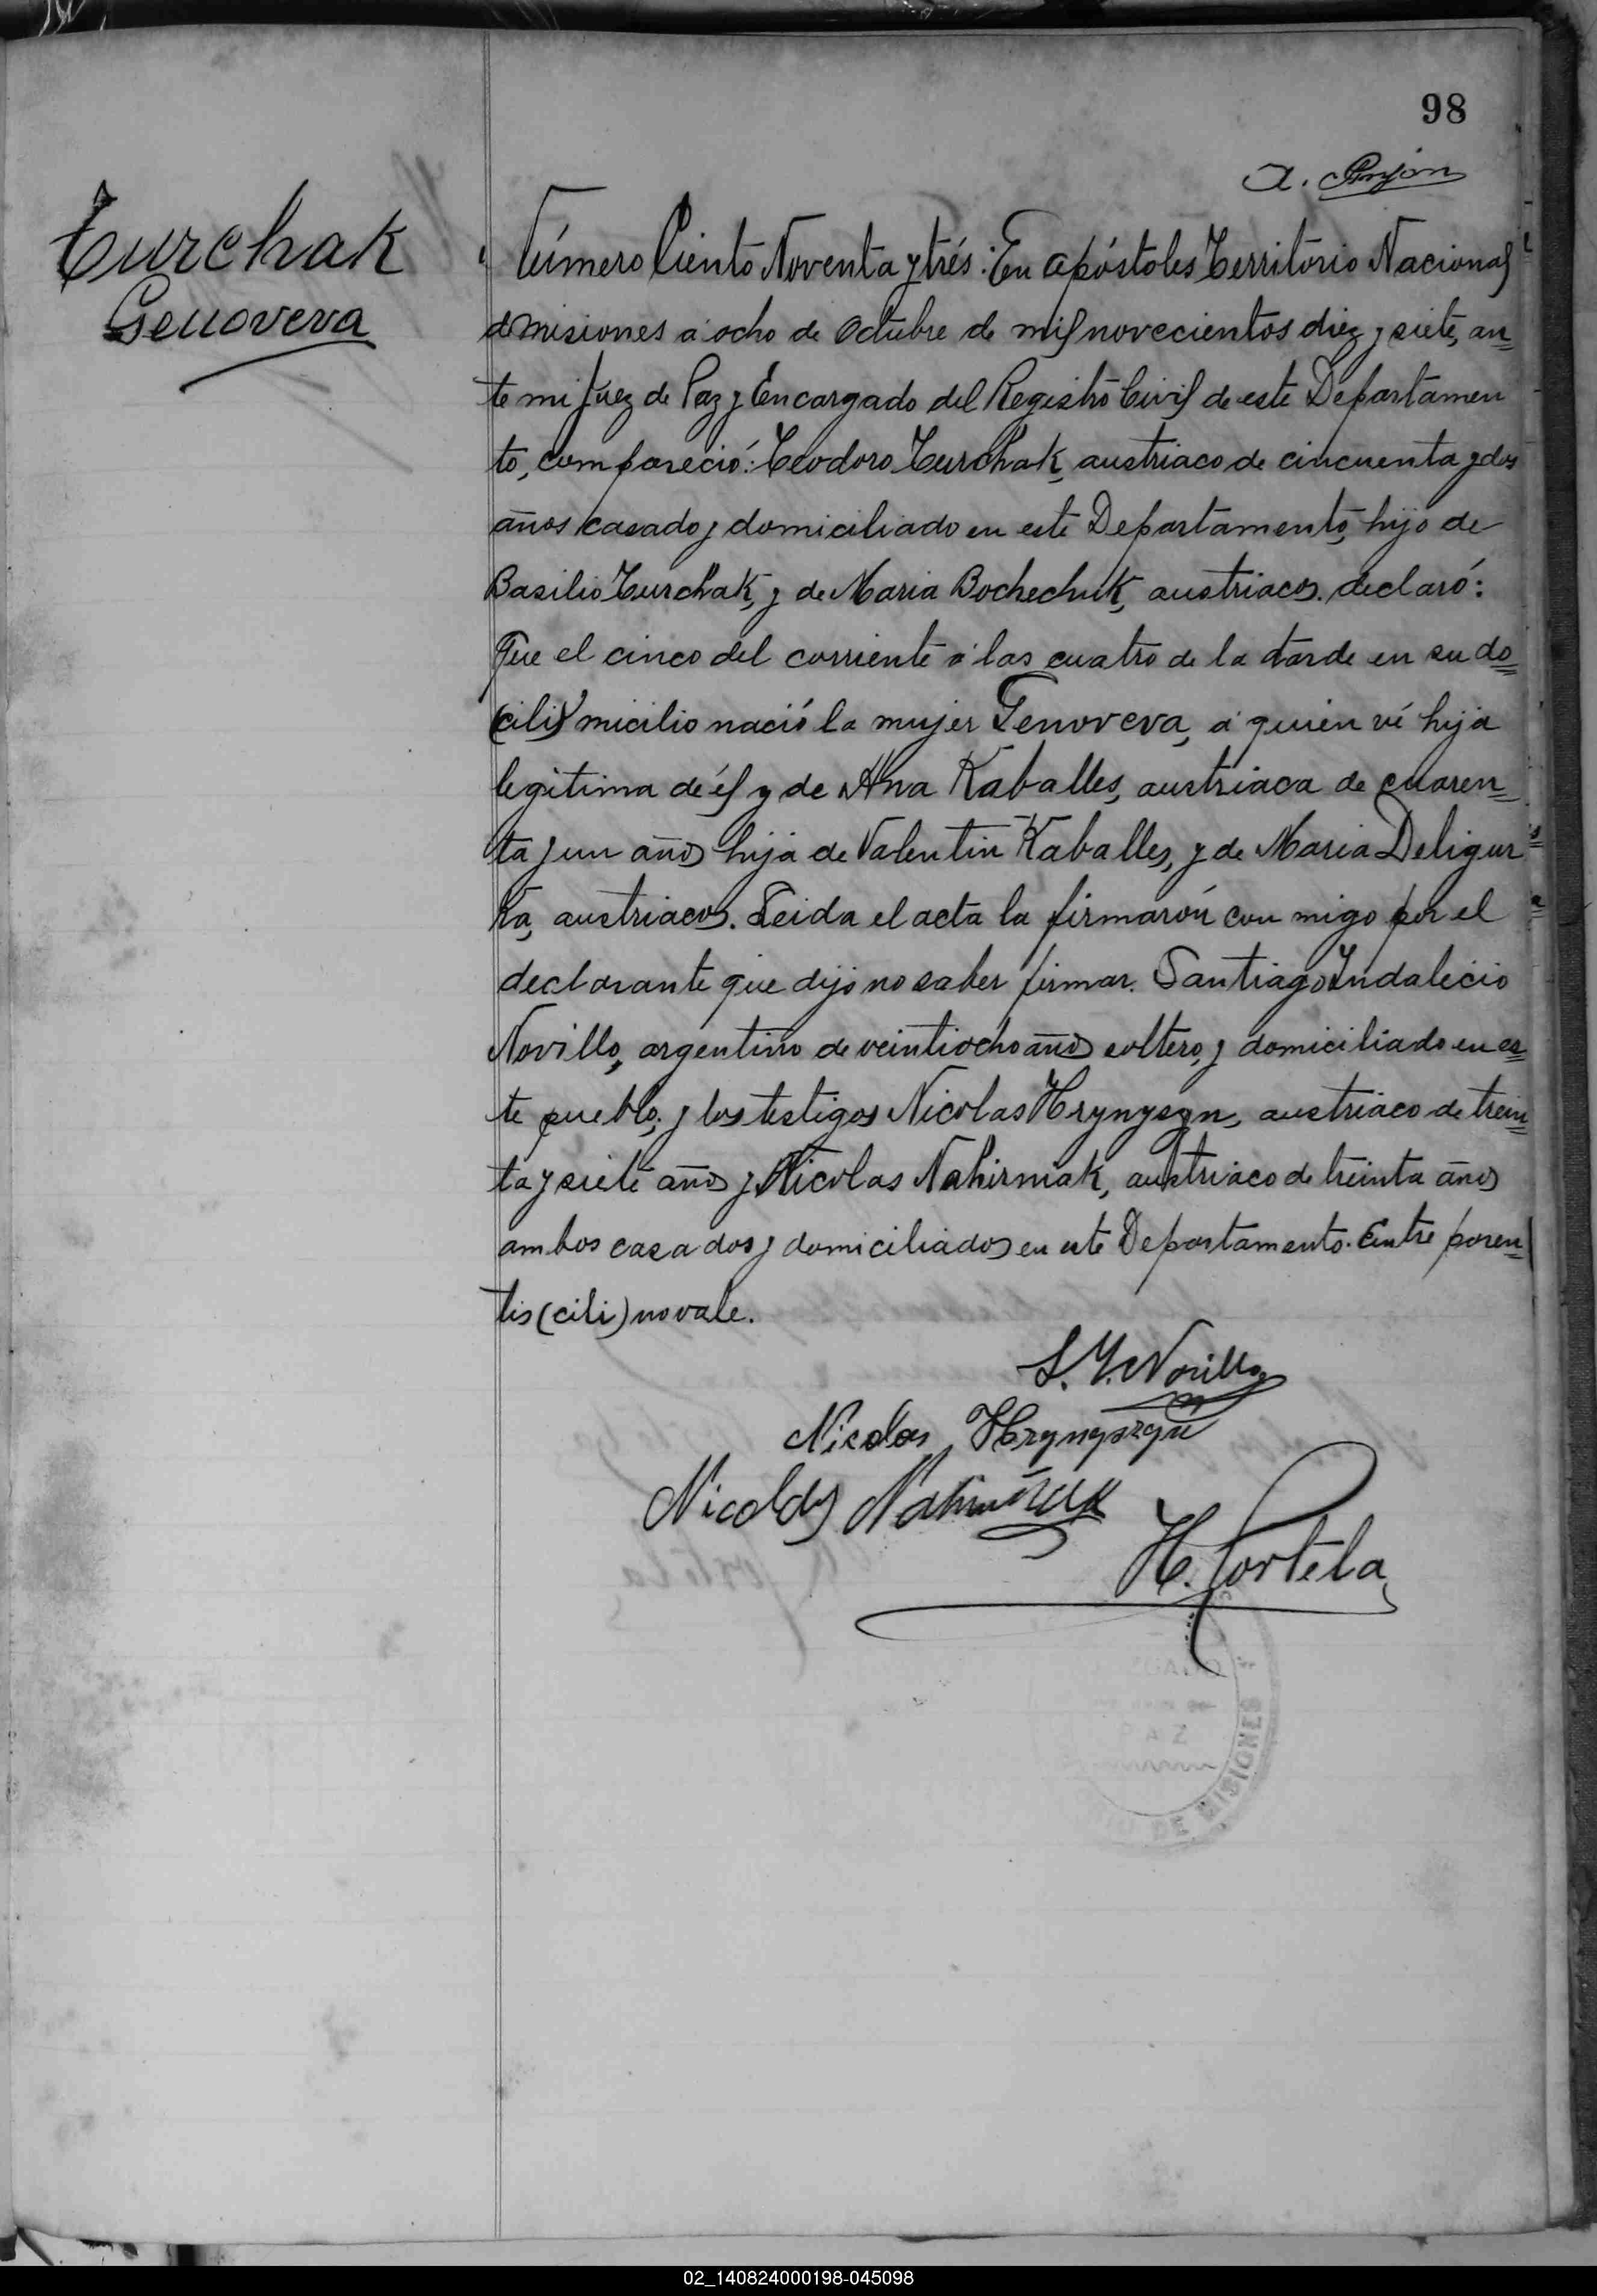 98
Turchak
Genoveva
Número Ciento Noventa y trés. En apóstoles Territorio Nacional
de misiones á ocho de Octubre de mil novecientos diez y siete, an
te mi Juez de Paz y Encargado del Registro Civil de este Departamen
to, compareció: Teodoro Turchak, austriaco de cincuenta y dos
años casado y domiciliado en este Departamento, hijo de
Basilio Turchak, y de Maria Bochechuk, austriacos. declaró:
Que el cinco del corriente á las cuatro de la tarde en su do
(cili) micilio nació la mujer Genoveva, á quien ví hija
legitima de él y de Ana Kaballes, austriaca de cuaren
ta y un años hija de Valentin Kaballes, y de Maria Deligur
ka, austriacos. Leida el acta la firmarón con migo por el
declarante que dijo no saber firmar. Santiago Indalecio
Novillo, argentino de veintiocho años soltero, y domiciliado en es
te pueblo, y los testigos Nicolas Hrynysyn, austriaco de trein
ta y siete años y Nicolas Nahirniak, austriaco de treinta años
ambos casados y domiciliados en este Departamento. Entre paren
tis (cili) no vale.
S. Y. Novillo
Nicolas Hrynyszyn
Nicolas Nahirniak
H. Portela
PAZ
DE MISIONES
02_140824000198-045098